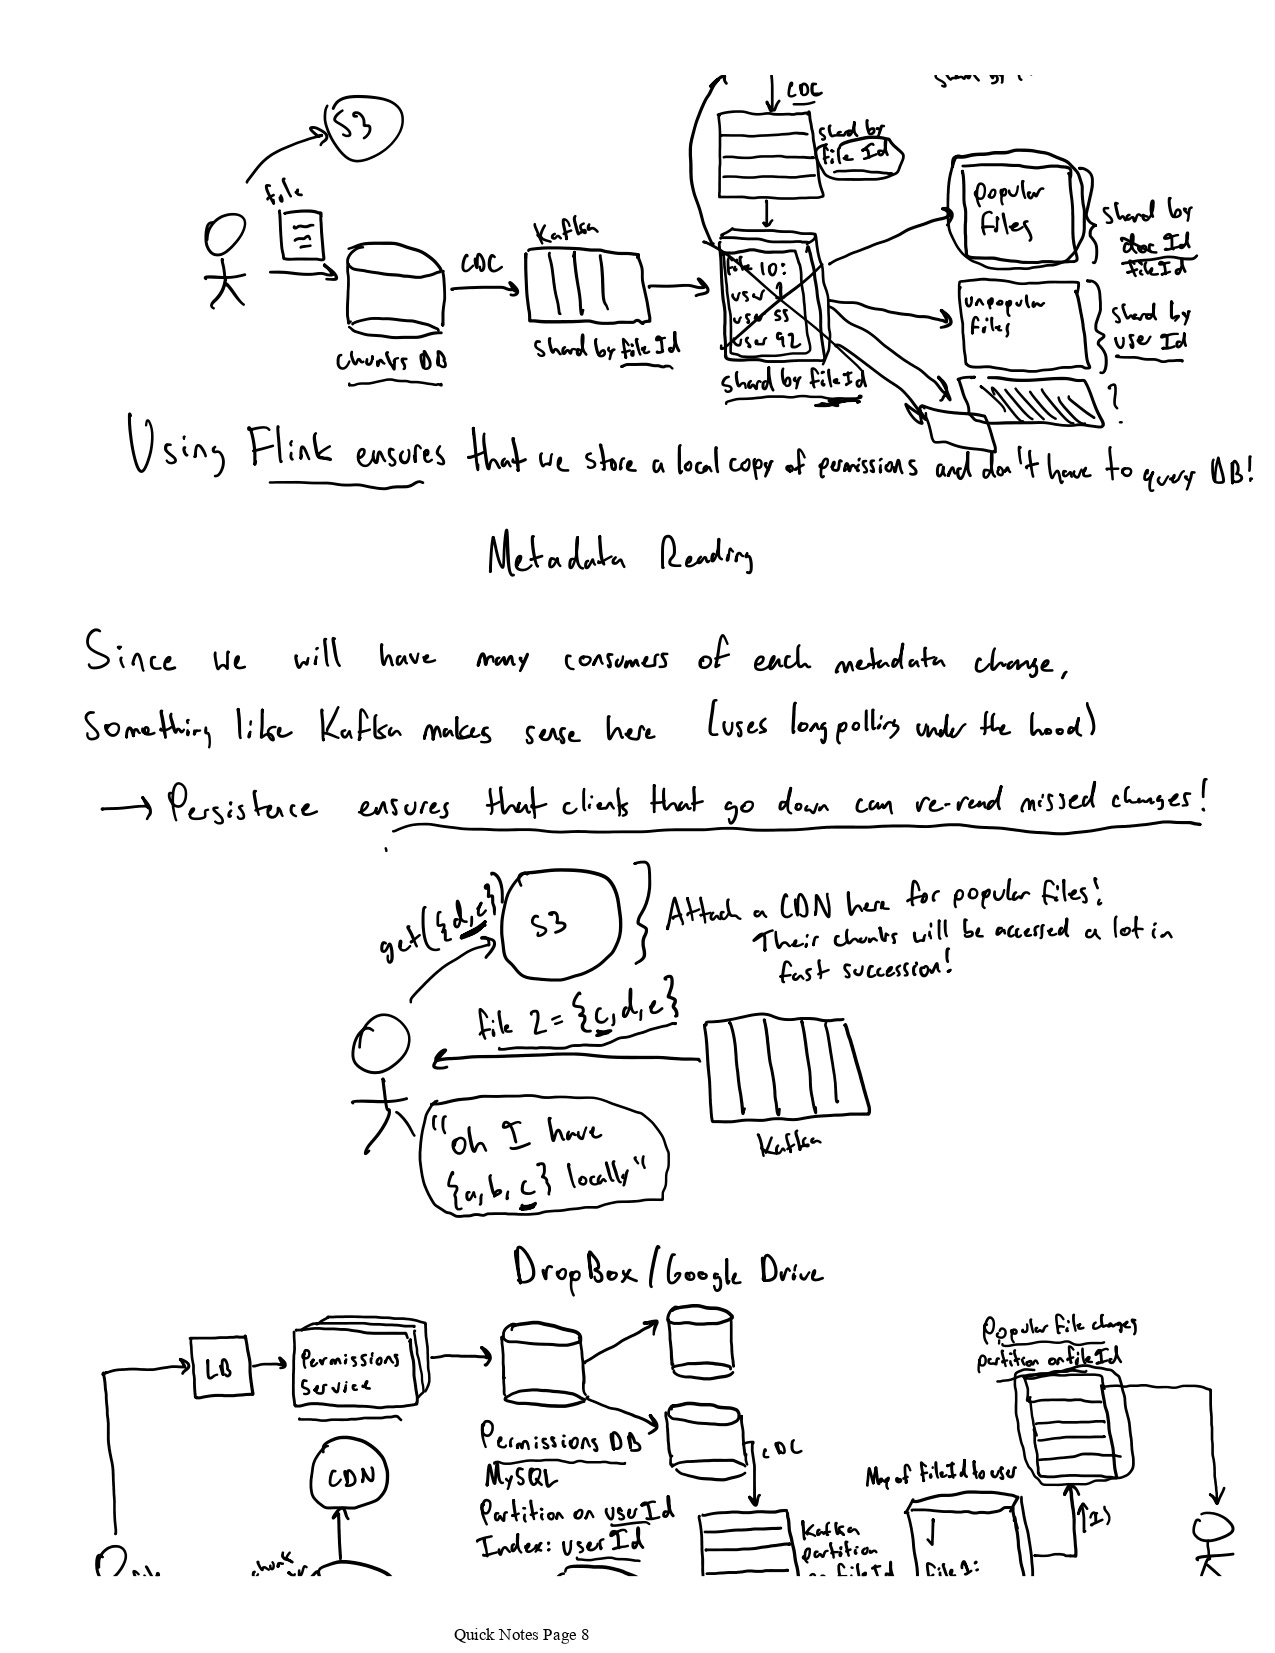 CDC
S3
shard by
file Id
file
popular
files
shard by
doc Id
file Id
Kafka
CDC
file 10:
user 1
user 55
user 92
unpopular
files
shard by
user Id
shard by file Id
chunks DB
shard by file Id
?
Using Flink ensures that we store a local copy of permissions and don't have to query DB!
Metadata Reading
Since we will have many consumers of each metadata change,
Something like Kafka makes sense here (uses long polling under the hood)
→ Persistence ensures that clients that go down can re-read missed changes!
get({d,e})
S3
Attach a CDN here for popular files!
Their chunks will be accessed a lot in
fast succession!
file 2 = {c,d,e}
"oh I have
{a,b,c} locally"
Kafka
DropBox/Google Drive
Popular file changes
partition on file Id
LB
Permissions
Service
CDC
Permissions DB
MySQL
Partition on user Id
Index: user Id
CDN
Map of file Id to user
Kafka
partition
on file Id
chunk
file 1:
Quick Notes Page 8